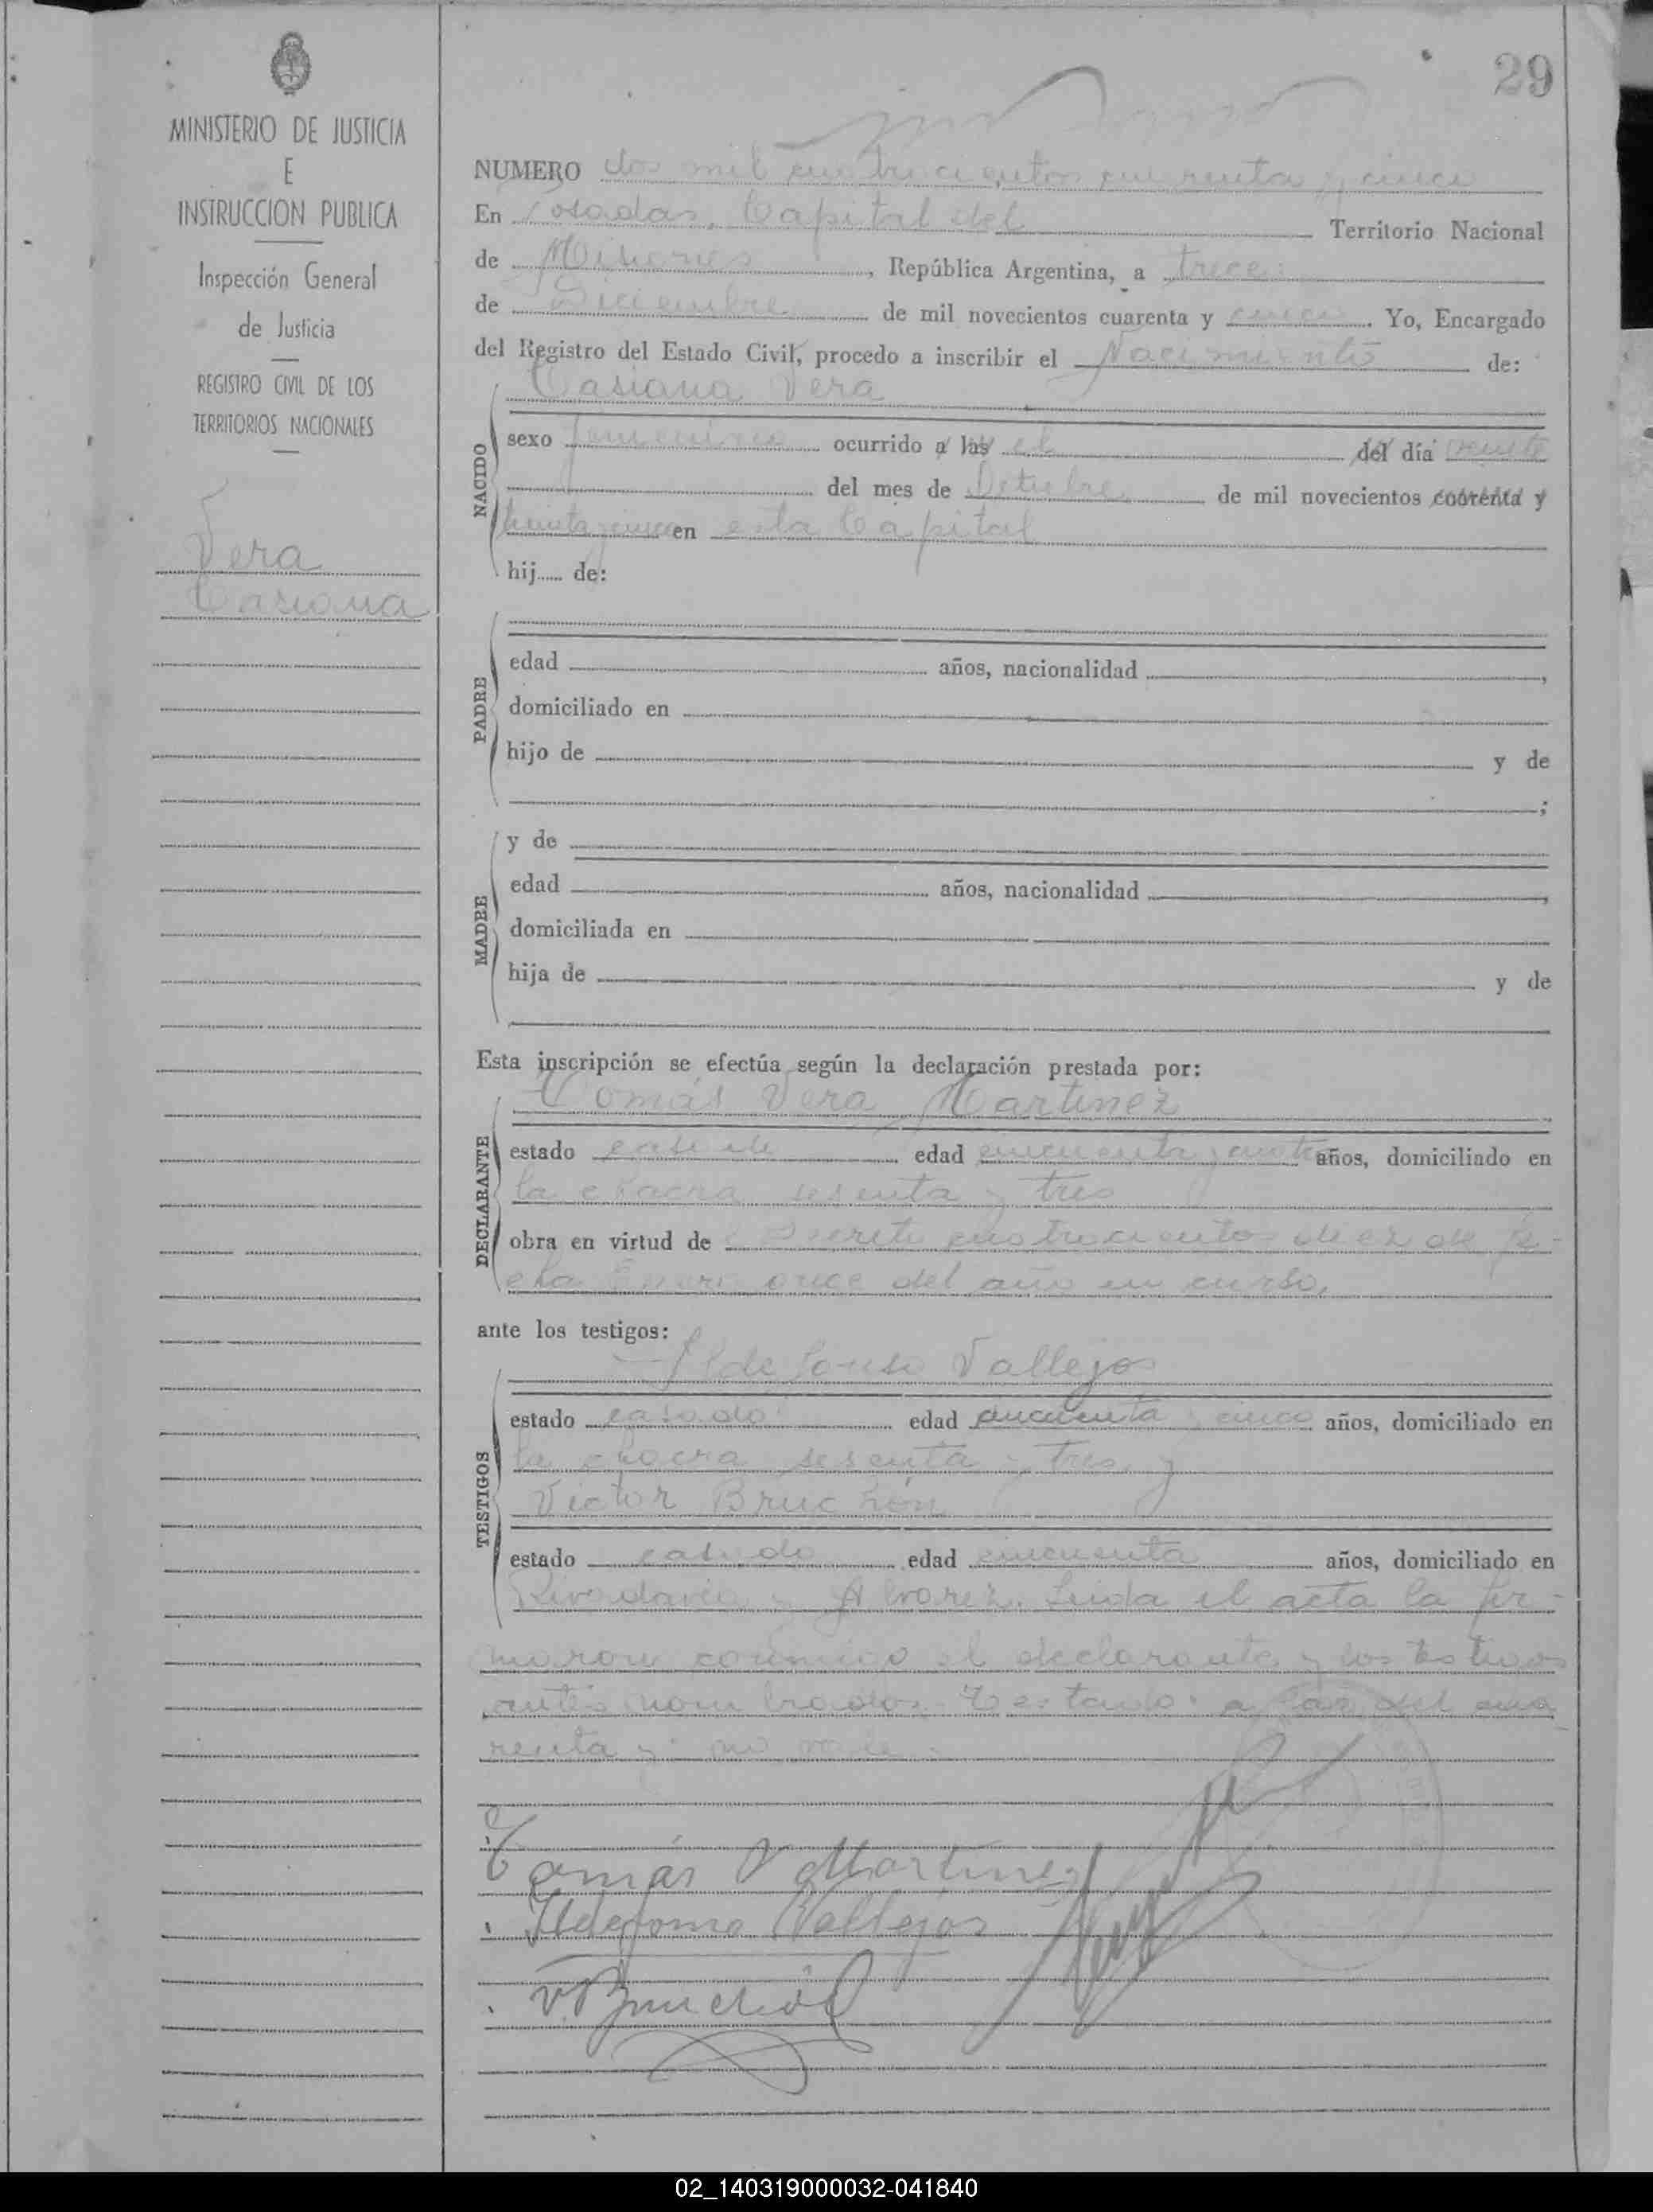 29
MINISTERIO DE JUSTICIA
E
INSTRUCCION PUBLICA
Inspección General
de Justicia
REGISTRO CIVIL DE LOS
TERRITORIOS NACIONALES
Vera
Casiana
NUMERO dos mil cuatrocientos cuarenta y cinco
En Posadas, Capital del Territorio Nacional
de Misiones, República Argentina, a trece
de Diciembre de mil novecientos cuarenta y cinco. Yo, Encargado
del Registro del Estado Civil, procedo a inscribir el Nacimiento de:
Casiana Vera
NACIDO
sexo femenino ocurrido a las el del día veinte
del mes de Octubre de mil novecientos cuarenta y
treinta y cinco en esta Capital
hij...... de:
PADRE
edad años, nacionalidad ,
domiciliado en
hijo de y de
;
MADRE
y de
edad años, nacionalidad ,
domiciliada en
hija de y de
Esta inscripción se efectúa según la declaración prestada por:
Tomás Vera Martinez
DECLARANTE
estado casado edad cincuenta y cuatro años, domiciliado en
la chacra sesenta y tres
obra en virtud de Decreto cuatrocientos diez de fe-
cha Enero once del año en curso,
ante los testigos:
Ildefonso Vallejos
TESTIGOS
estado casado edad cincuenta y cinco años, domiciliado en
la chacra sesenta y tres y
Victor Bruchón
estado casado edad cincuenta años, domiciliado en
Rivadavia y Alvarez. Leida el acta la fir-
maron conmigo el declarante y los testigos
antes nombrados. Testado: a las del cua
renta y: no vale.
Tomás V Martinez
Ildefonso Vallejos
V. Bruchón
02_140319000032-041840